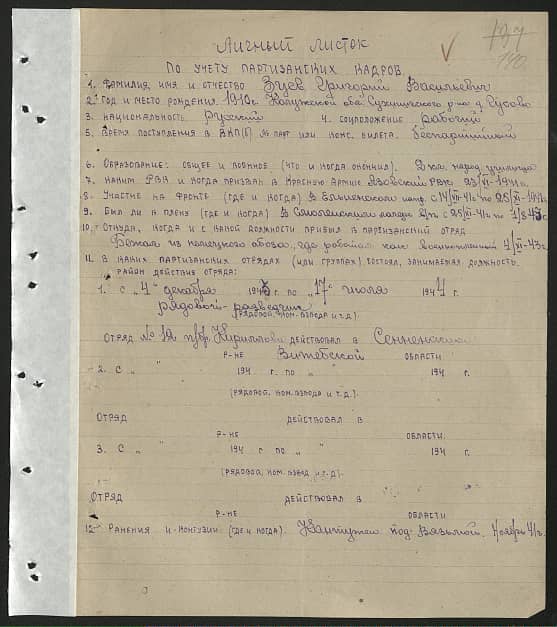 Личный листок
190
по учету партизанских кадров
1. Фамилия, имя и отчество Зуев Григорий Васильевич
2. Год и место рождения 1910г. Калужской обл. Сухиничского р-на д. Гусово
3. Национальность Русский 4. Соцположение рабочий
5. Время поступления в ВКП(б) № парт или комс. билета. беспартийный
6. Образование: общее и военное (что и когда окончил). 2 кл. народ. училища
7. Каким РВК и когда призван в Красную Армию РВК 23/VI-1941г.
8. Участие на фронте (где и когда) в Ельнинском напр. с 14/VII-41г по 25/XI-1941г
9. Был ли в плену (где и когда) в Смоленском лагере с 25/XI-41г по
10. Откуда, когда и с какой должности прибыл в партизанский отряд
Бежал из немецкого обоза, где работал как военнопленный 4/XII-43г.
11. В каких партизанских отрядах (или группах) состоял, занимаемая должность,
район действия отряда:
1. С "4" декабря 1943 г. по "17" июля 1944 г.
рядовой-разведчик
(рядовой, ком. взвода и т.д.).
Отряд № 12 п/бр. Кириллова действовал в Сенненском
р-не Витебской области
2. С " " 194 г. по " " 194 г.
(рядовой, ком. взвода и т.д.).
Отряд действовал в
р-не области.
3. С " " 194 г по " " 194 г.
(рядовой, ком. взвод. и т.д).
Отряд действовал в
р-не области
12. Ранения и контузии (где и когда). Контужен под Вязьмой. Ноябрь 41г.